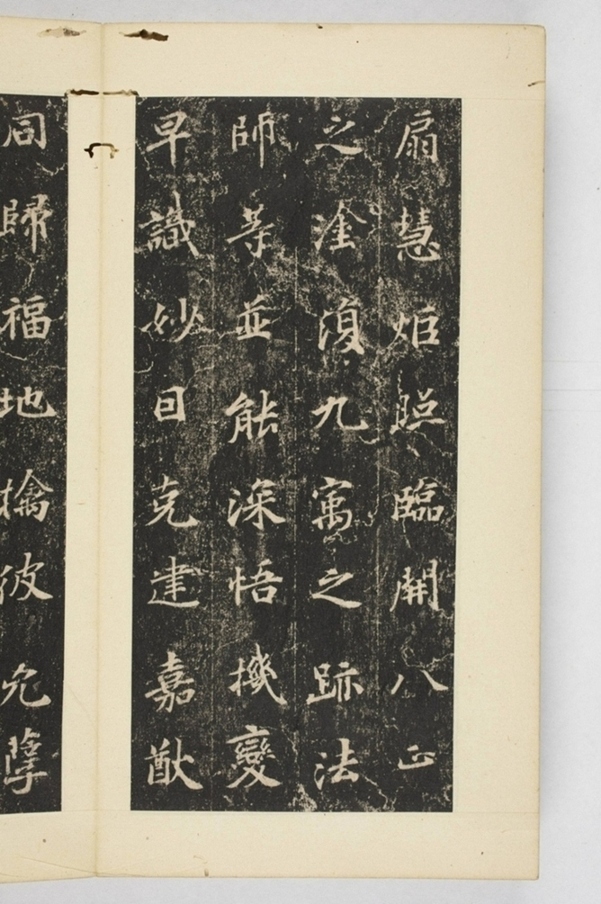 扇慧炬照臨開八正
之塗復九寓之跡法
師等並能深悟機變
早識妙因克建嘉猷
同歸福地擒彼兇孽